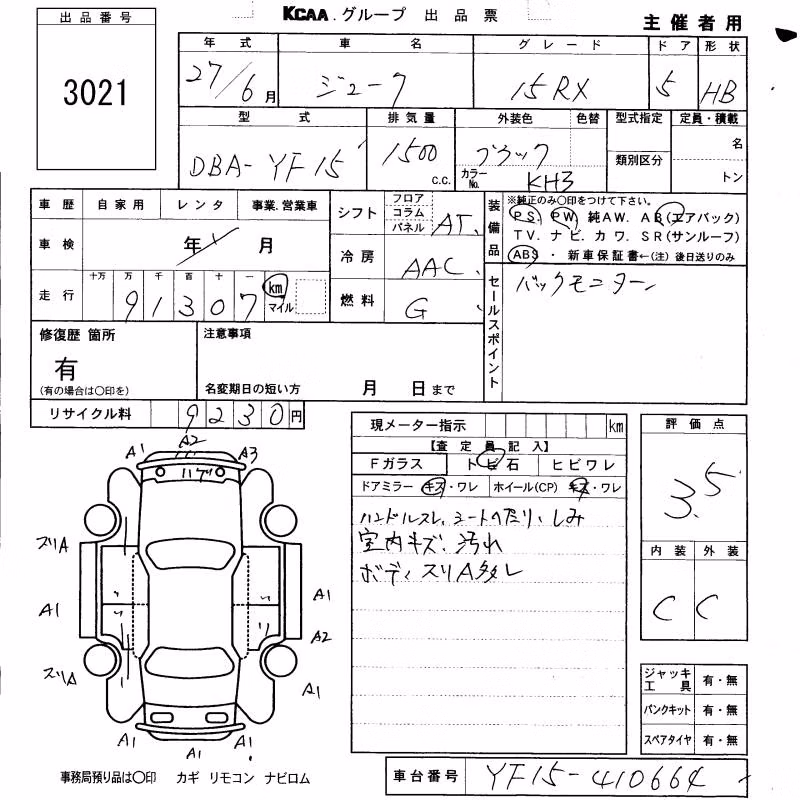 KCAA.グループ 出品票
主催者用
出品番号
3021
年式 車名 グレード ドア 形状
27/6月 ジューク 15RX 5 HB
型式 排気量 外装色 色替 型式指定 定員・積載
DBA-YF15 1500 c.c. ブラック 類別区分 名
カラーNo. KH3 トン
車歴 自家用 レンタ 事業.営業車
シフト フロア コラム パネル AT
装備品 ※純正のみ〇印をつけて下さい。
PS. PW. 純AW. AB(エアバック)
TV. ナビ. カワ. SR(サンルーフ)
ABS ・ 新車保証書←(注) 後日送りのみ
車検 年 月
冷房 AAC
走行 十万 万 千 百 十 一
91307 km マイル
燃料 G
セールスポイント バックモニター
修復歴 箇所
有
(有の場合は〇印を)
注意事項
名変期日の短い方 月 日まで
リサイクル料 9230円
現メーター指示 km
【査定員記入】
Fガラス トビ石 ヒビワレ
ドアミラー キズ・ワレ ホイール(CP) キズ・ワレ
ハンドルスレ、シートへたり、しみ
室内キズ、汚れ
ボディスリA多し
評価点
3.5
内装 外装
C C
A1 A2 A3
ハゲ
スリA
A1 A1
A2
スリA
A1
A1 A1 A1
ジャッキ工具 有・無
パンクキット 有・無
スペアタイヤ 有・無
事務局預り品は〇印 カギ リモコン ナビロム
車台番号 YF15-410664